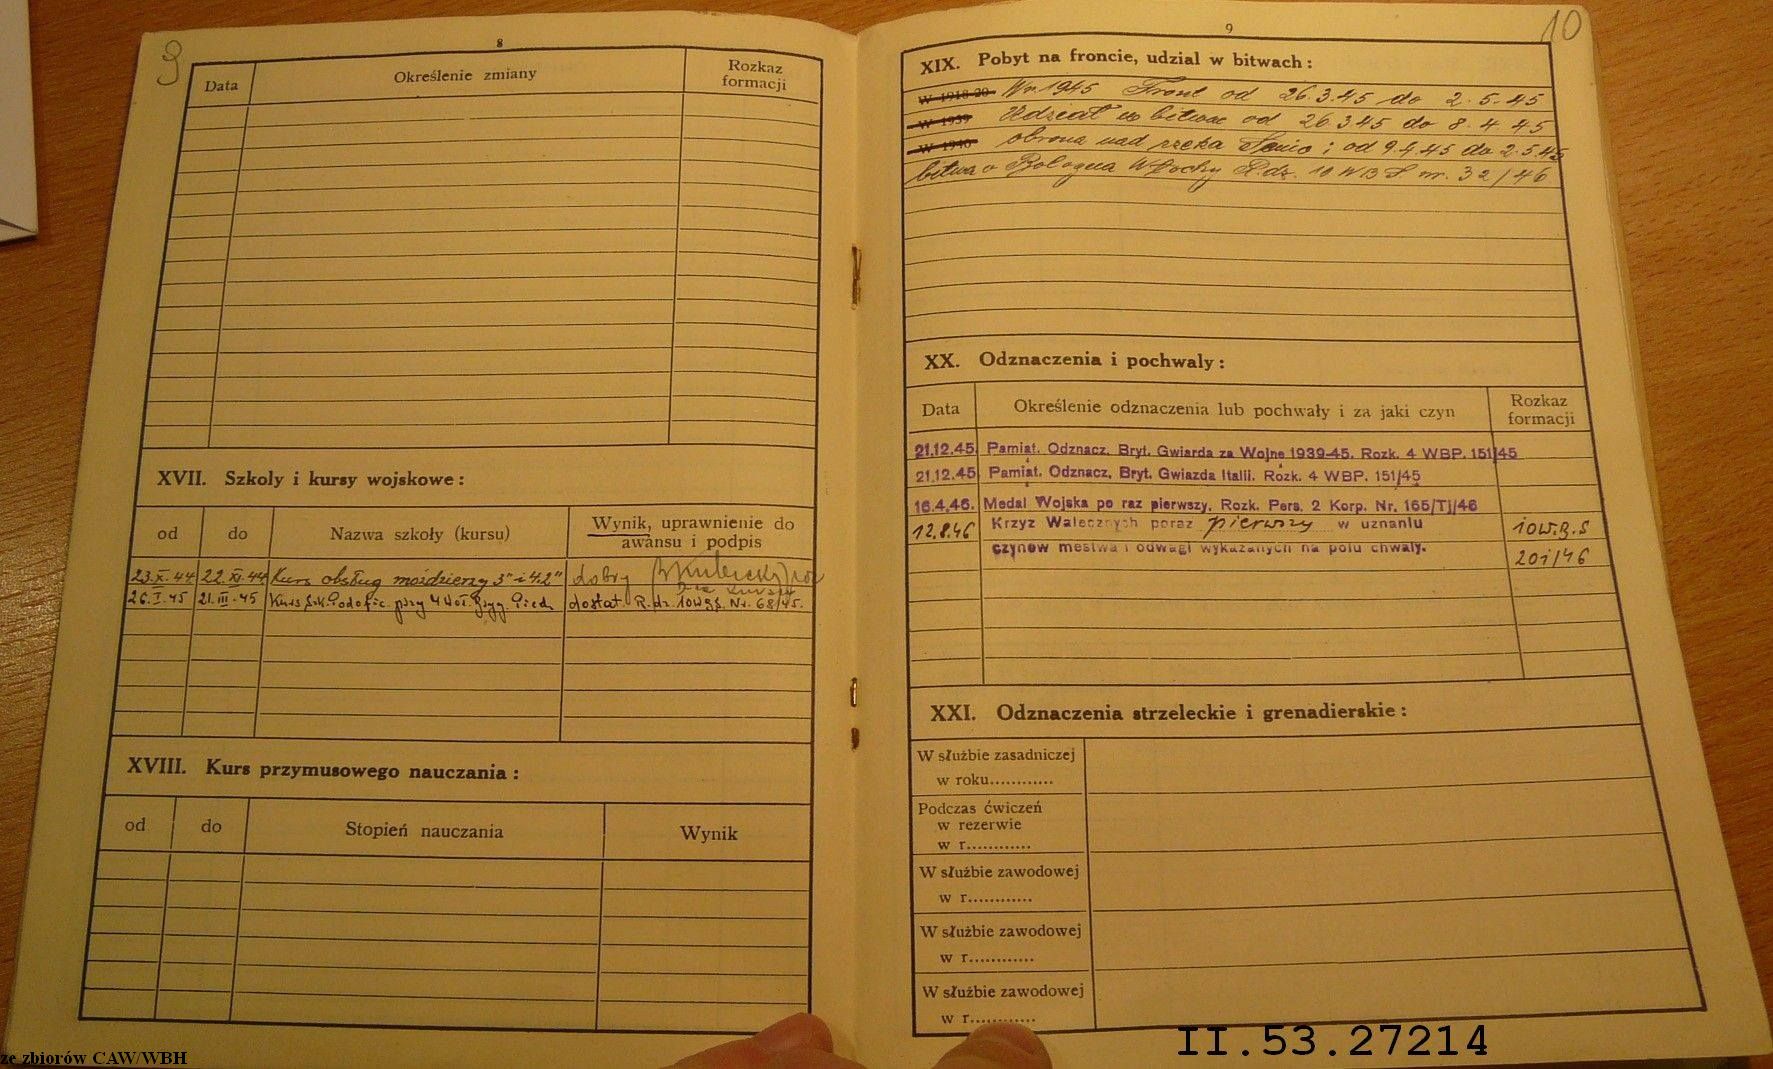 9
8
Data Określenie zmiany Rozkaz formacji
XVII. Szkoly i kursy wojskowe:
od do Nazwa szkoły (kursu) Wynik, uprawnienie do awansu i podpis
23.X.44 22.XI.44 Kurs obsług moździerzy 3" i 4.2" dobry
26.I.45 21.III.45 Kurs przy dostat. R.dz. Nr. 68/45.
XVIII. Kurs przymusowego nauczania:
od do Stopień nauczania Wynik
10
9
XIX. Pobyt na froncie, udzial w bitwach:
W 1918-20 W r. 1945 Front od 26.3.45 do 2.5.45
W 1939 Udział w bitwac od 26.3.45 do 8.4.45
W 1940 obrona nad rzeka Senio; od 9.4.45 do 2.5.45
bitwa o Bologna Włochy R.dz. 10 W B S. nr. 32/46
XX. Odznaczenia i pochwaly:
Data Określenie odznaczenia lub pochwały i za jaki czyn Rozkaz formacji
21.12.45. Pamiąt. Odznacz. Bryt. Gwiarda za Wojnę 1939-45. Rozk. 4 WBP. 151/45
21.12.45. Pamiąt. Odznacz. Bryt. Gwiazda Italii. Rozk. 4 WBP. 151/45
16.4.46. Medal Wojska po raz pierwszy. Rozk. Pers. 2 Korp. Nr. 165/TJ/46
12.8.46 Krzyż Walecznych poraz pierwszy w uznaniu 10W.B.S
czynów męstwa i odwagi wykazanych na polu chwały. 201/46
XXI. Odznaczenia strzeleckie i grenadierskie:
W służbie zasadniczej
w roku............
Podczas ćwiczeń
w rezerwie
w r............
W służbie zawodowej
w r............
W służbie zawodowej
w r............
W służbie zawodowej
w r............
II.53.27214
ze zbiorów CAW/WBH